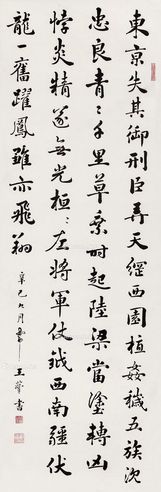 東京失其御刑臣弄天綱西園植姦穢五族沈
忠良青〻千里草乘時起陸梁當塗轉凶
悖炎精遂無光桓〻左將軍仗鉞西南疆伏
龍一奮躍鳳雛亦飛翔
辛巳九月 王 書